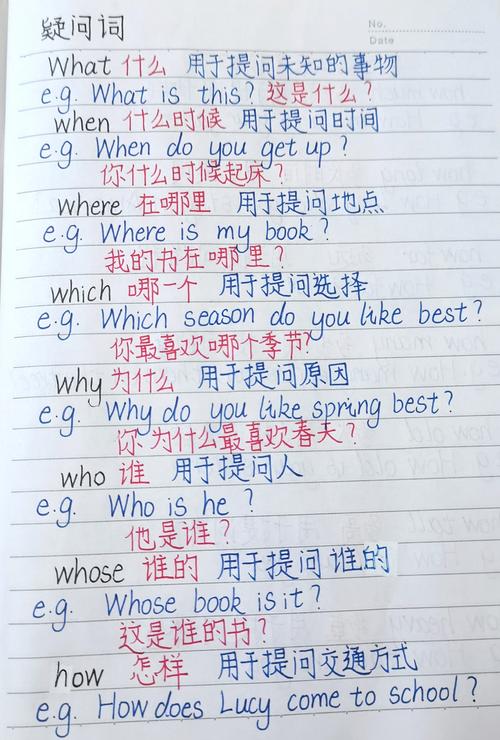 疑问词
No.
Date
What 什么 用于提问未知的事物
e.g. What is this? 这是什么?
when 什么时候 用于提问时间
e.g. When do you get up?
你什么时候起床?
where 在哪里 用于提问地点
e.g. Where is my book?
我的书在哪里?
which 哪一个 用于提问选择
e.g. Which season do you like best?
你最喜欢哪个季节?
why 为什么 用于提问原因
e.g. Why do you like spring best?
你为什么最喜欢春天?
who 谁 用于提问人
e.g. Who is he?
他是谁?
whose 谁的 用于提问谁的
e.g. Whose book is it?
这是谁的书?
how 怎样 用于提问交通方式
e.g. How does Lucy come to school?